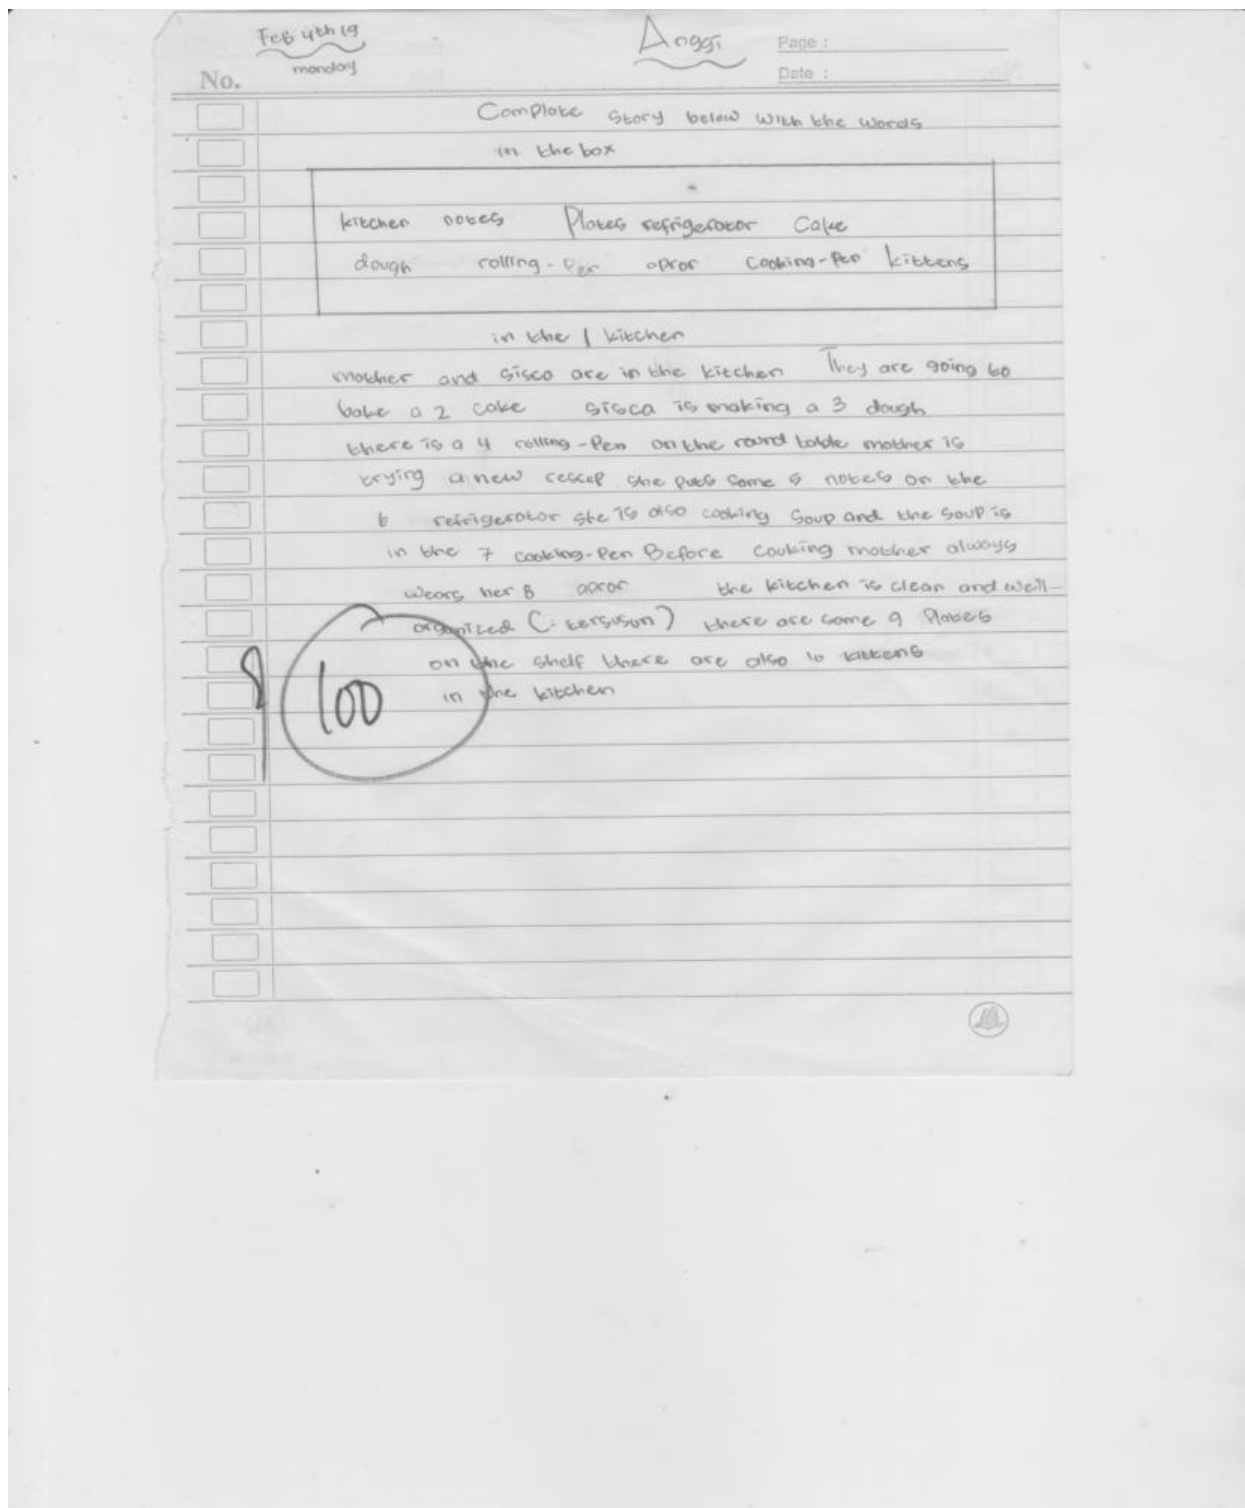 Feb 4th 19
monday
Anggi
Page :
Date :
No.
Complate Story below with the words
in the box
kitchen notes Plates refrigerator Cake
dough rolling-Pen apror cooking-Pen kittens
in the 1 kitchen
mother and Sisca are in the kitchen They are going to
bake a 2 cake sisca is making a 3 dough
there is a 4 rolling-Pen on the round table mother is
trying a new she puts some 5 notes on the
6 refrigerator she is also cooking Soup and the soup is
in the 7 cooking-Pen Before cooking mother always
wears her 8 apror the kitchen is clean and well-
organized (: tersusun) there are some 9 Plates
on the shelf there are also 10 kittens
in the kitchen
100